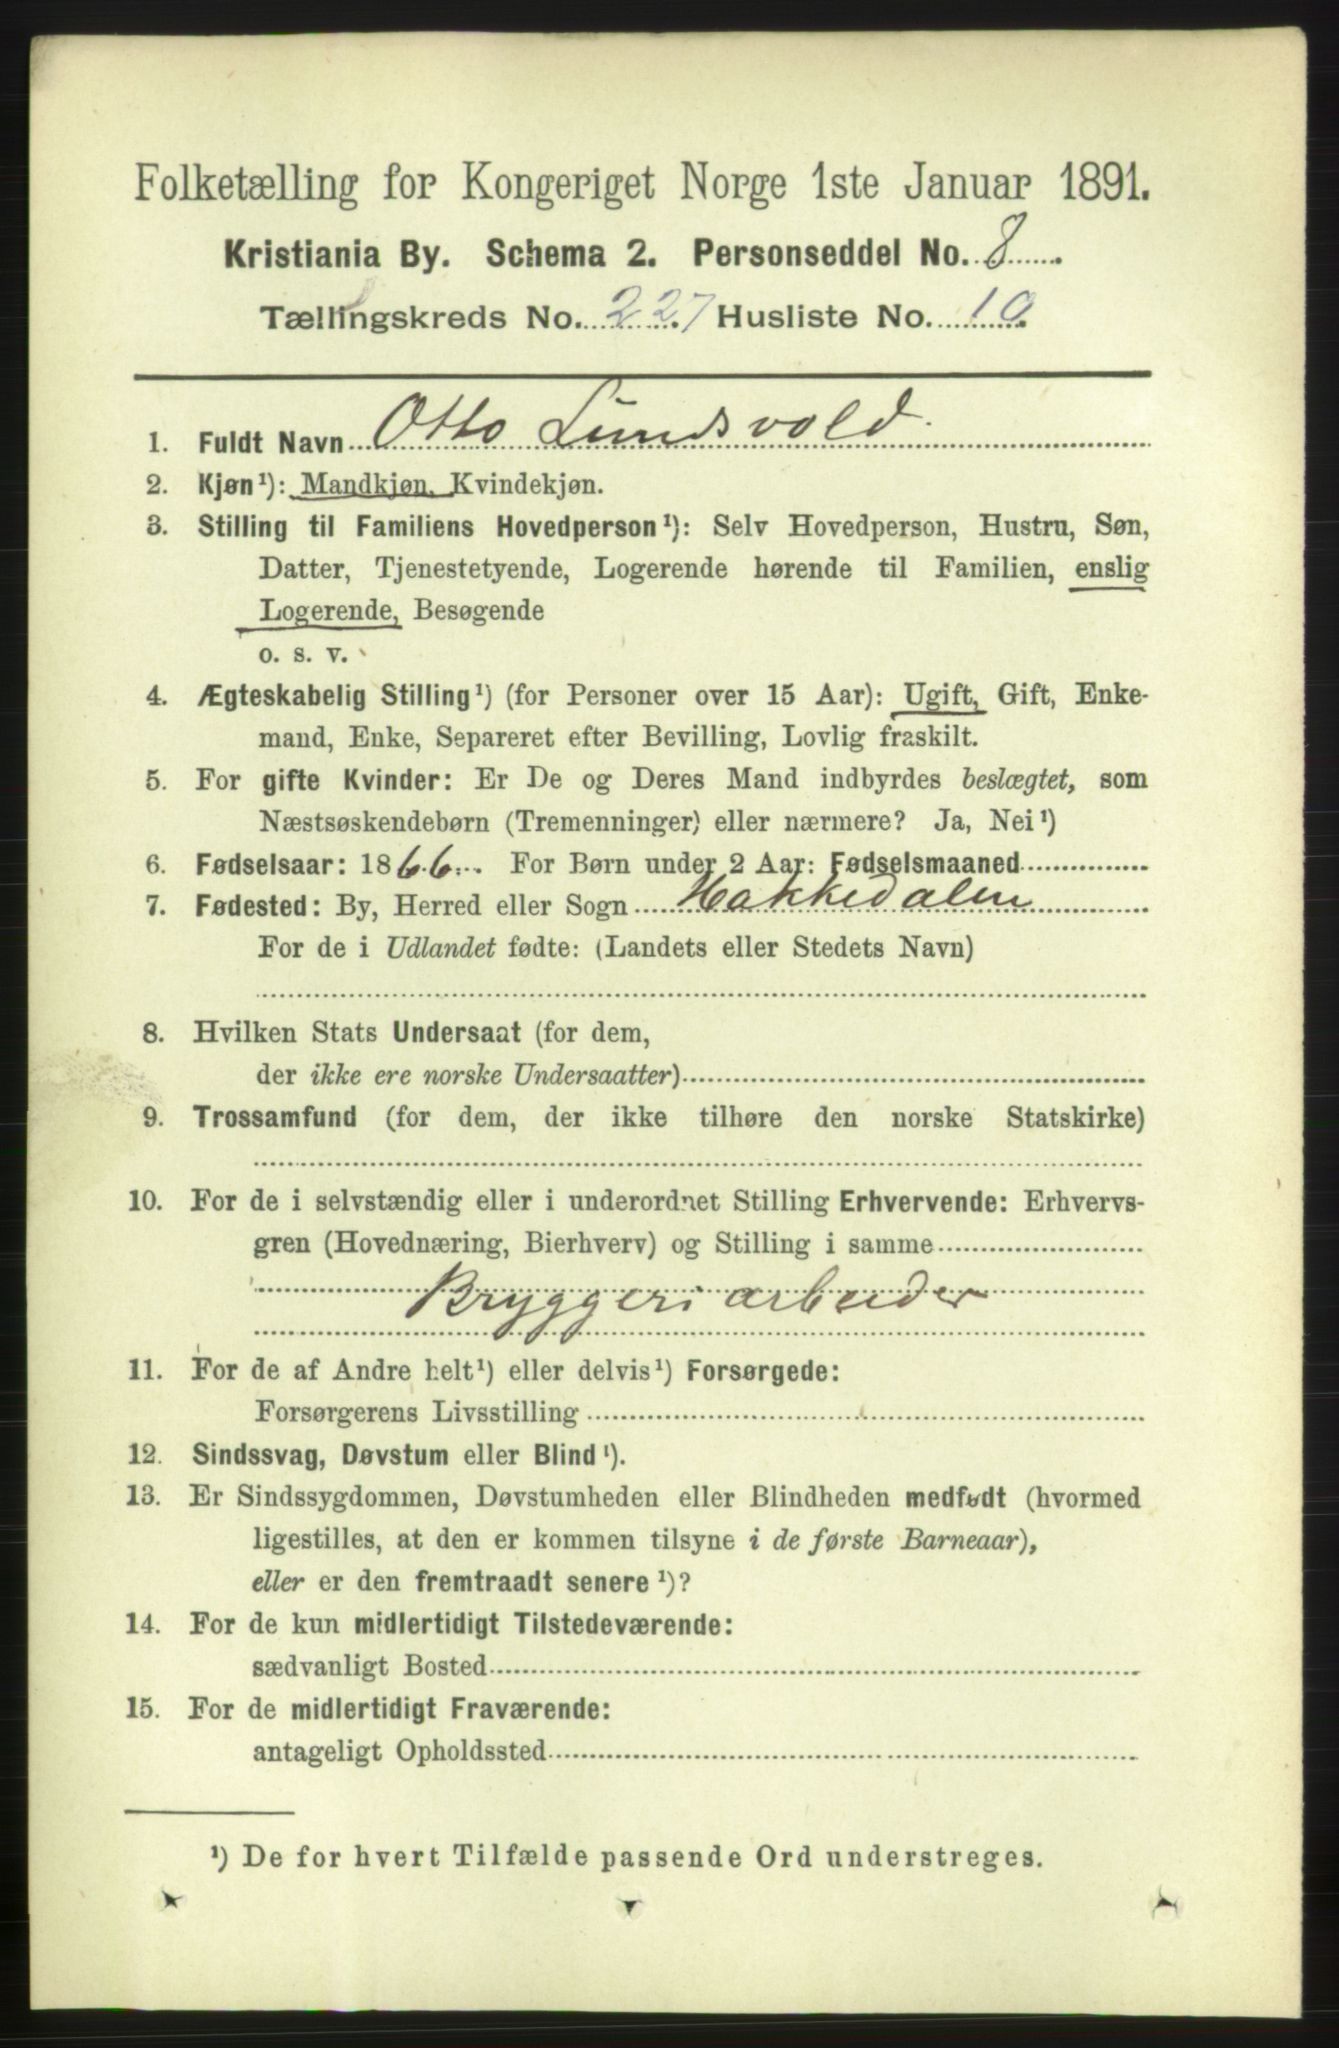 Folketælling for Kongeriget Norge 1ste Januar 1891.
Kristiania By. Schema 2. Personseddel No. 8
Tællingskreds No. 227 Husliste No. 10
1. Fuldt Navn Otto Lundsvold
2. Kjøn¹): Mandkjøn, Kvindekjøn.
3. Stilling til Familiens Hovedperson¹): Selv Hovedperson, Hustru, Søn,
Datter, Tjenestetyende, Logerende hørende til Familien, enslig
Logerende, Besøgende
o. s. v.
4. Ægteskabelig Stilling¹) (for Personer over 15 Aar): Ugift, Gift, Enke-
mand, Enke, Separeret efter Bevilling, Lovlig fraskilt.
5. For gifte Kvinder: Er De og Deres Mand indbyrdes beslægtet, som
Næstsøskendebørn (Tremenninger) eller nærmere? Ja, Nei¹)
6. Fødselsaar: 1866. For Børn under 2 Aar: Fødselsmaaned
7. Fødested: By, Herred eller Sogn Hakkedalen
For de i Udlandet fødte: (Landets eller Stedets Navn)
8. Hvilken Stats Undersaat (for dem,
der ikke ere norske Undersaatter)
9. Trossamfund (for dem, der ikke tilhøre den norske Statskirke)
10. For de i selvstændig eller i underordnet Stilling Erhvervende: Erhvervs-
gren (Hovednæring, Bierhverv) og Stilling i samme
Bryggeriarbeider
11. For de af Andre helt¹) eller delvis¹) Forsørgede:
Forsørgerens Livsstilling
12. Sindssvag, Døvstum eller Blind¹).
13. Er Sindssygdommen, Døvstumheden eller Blindheden medfødt (hvormed
ligestilles, at den er kommen tilsyne i de første Barneaar),
eller er den fremtraadt senere¹)?
14. For de kun midlertidigt Tilstedeværende:
sædvanligt Bosted
15. For de midlertidigt Fraværende:
antageligt Opholdssted
¹) De for hvert Tilfælde passende Ord understreges.